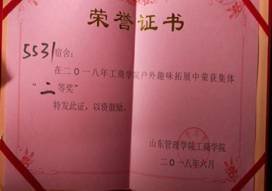 荣誉证书
5531宿舍:
在二〇一八年工商学院户外趣味拓展中荣获集体
“二等奖”
特发此证,以资鼓励。
山东管理学院工商学院
二〇一八年六月